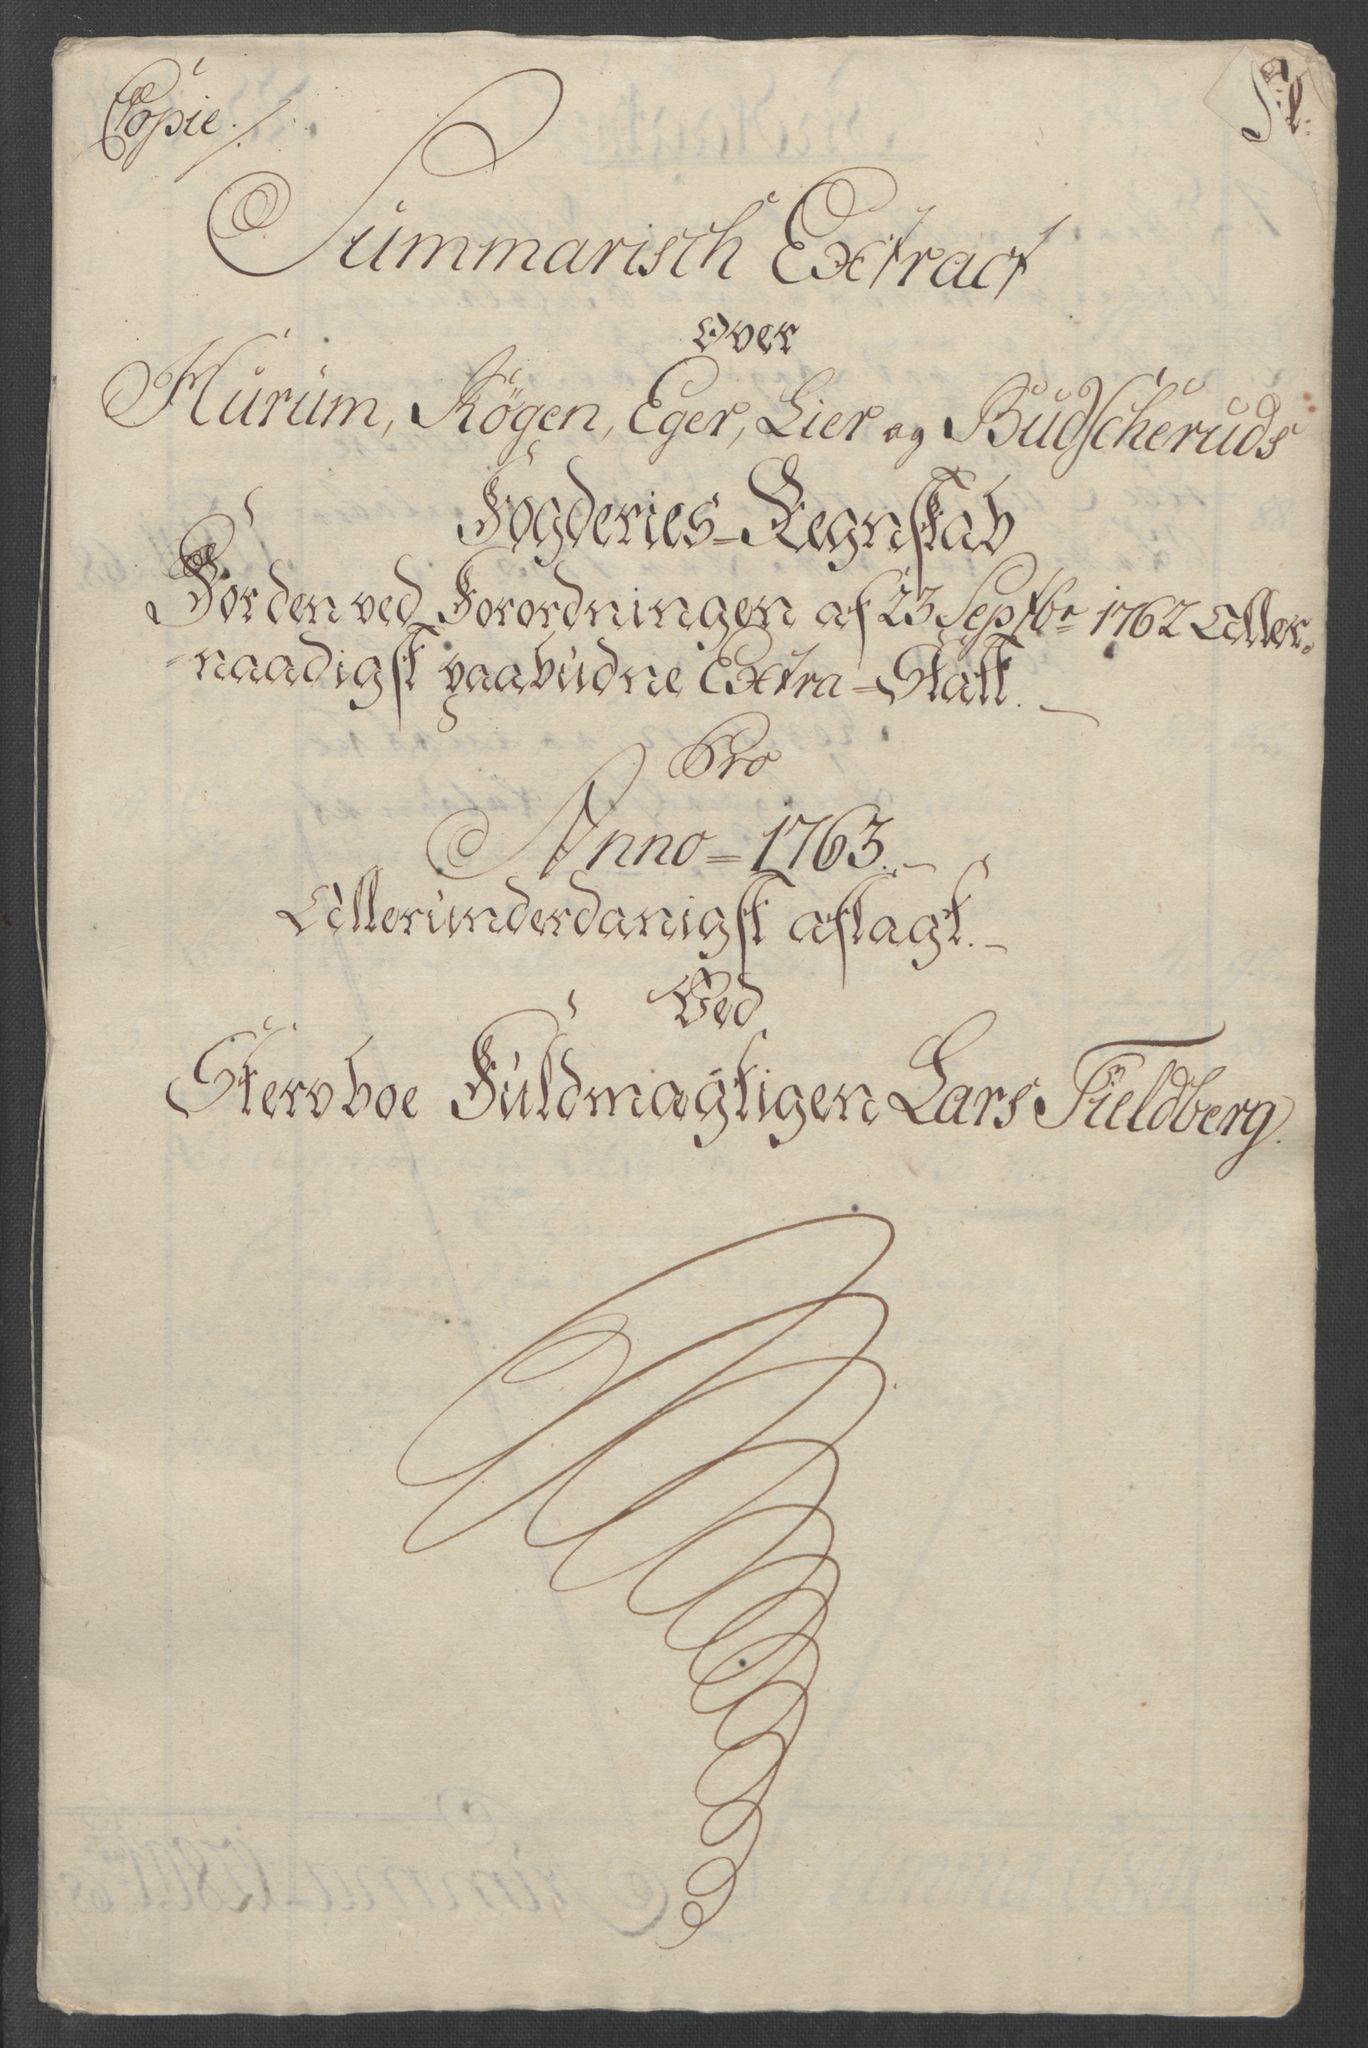 Copie
Summarisch Extract
Over
Hurum, Røgen, Eger, Lier og Budscheruds
Fogderies Regnskab
For den ved Forordningen af 23 Septbr 1762 Aller-
naadigst paabudne Extra-Skatt.
Pro
Anno 1763.
Allerunderdanigst aflagt.
Ved
Stervboe Fuldmægtigen Lars Fieldberg.